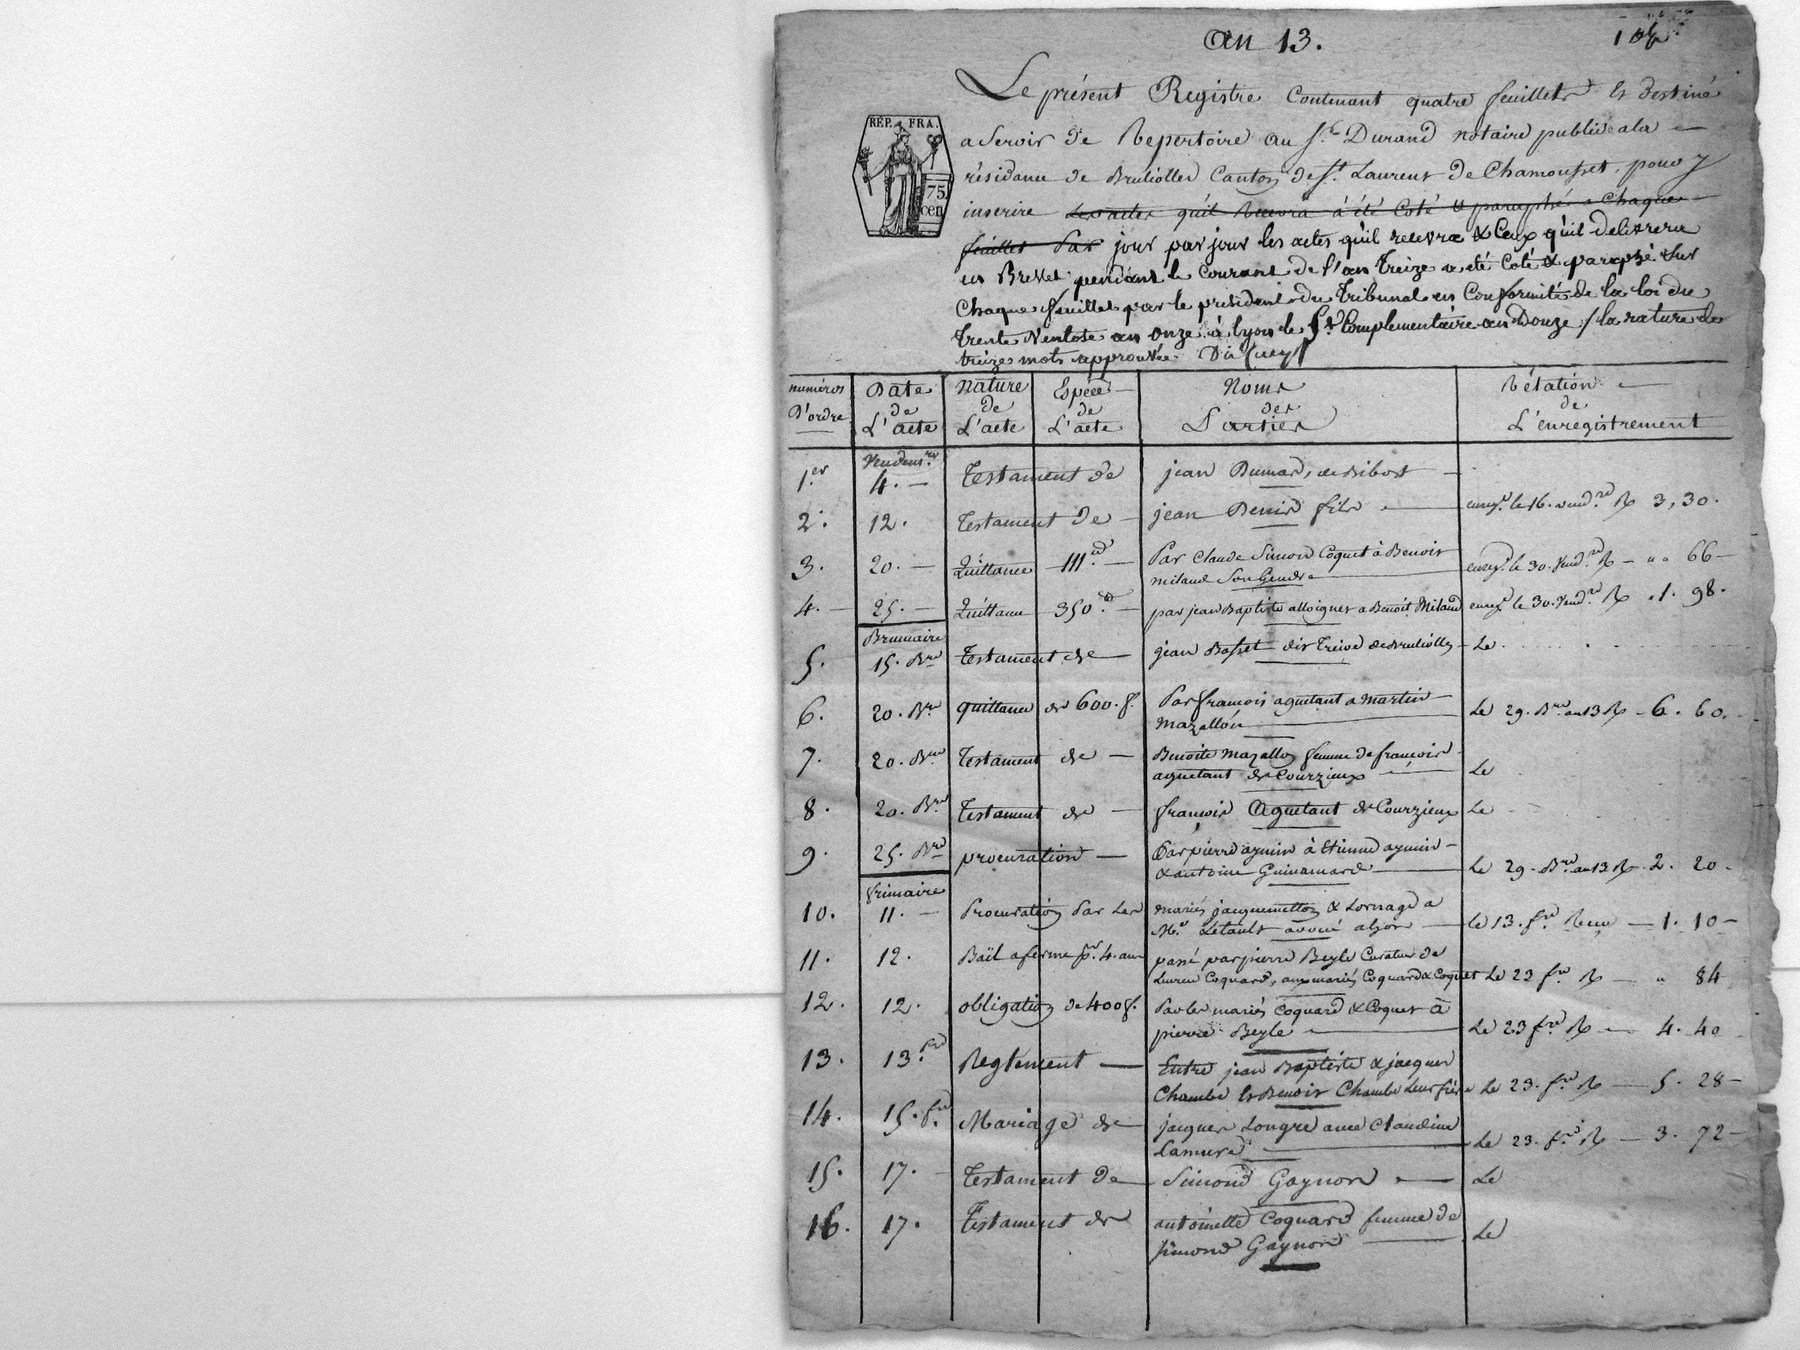 an 13.
Le présent Registre Contenant quatre feuillets Est destiné
RÉP. FRA.
a servir de Repertoire au Sr. Durand notaire public a la
résidance de Bruliolles Canton de St. Laurent de Chamousset, pour y
75
cen
inscrire Les actes qu'il Recevra à été Coté & paraphé a Chaque
feuillet Par jour par jour les actes qu'il recevra & Ceux qu'il delivrera
en Brevet pendant le Courant de l'an treize a été Coté & paraphé sur
Chaque feuillet par le president du Tribunal en Conformité de la loi du
trente Ventose an onze à lyon le 5e. Complementaire an Douze / la rature de
treize mots approuvée
numéros Date Nature Espéce Noms Rélation
D'ordre de de de des de
L'acte L'acte L'acte Parties L'enregistrement
Vendem.re
1.er 4. Testament de jean Dumard, de Ribost
2. 12. Testament de jean Denis fils enreg.é le 16. vend.re R 3, 30.
3. 20. Quittance 111.# Par Claude Simon Coquet à Benoit
milaud Son Gendre enreg.é le 30. Vend.re R " " 66
4. 25. Quittance 350.# par jean Baptiste alloignet a Benoit Milaud enreg.é le 30. Vend.re R . 1. 98.
Brumaire
5. 15. B.re Testament de jean Basset dit Treive de Brulliolles Le
6. 20. B.re quittance de 600. f. Par francois aguetant a Martin
Mazallon Le 29. B.re an 13 R 6. 60.
7. 20. B.re Testament de Benoite Mazallon femme de françois
aguetant de Courzieux Le
8. 20. B.re Testament de françois Aguetant de Courzieux Le
9. 25. B.re procuration Par pierre aymin à Etienne aymin
& antoine Guinamard Le 29. B.re an 13 R 2. 20.
frimaire
10. 11. Procuration Par Les mariés jacquemetton & Lornage a
M.r Létault avoué a lyon Le 13. f.re Recu 1. 10
11. 12. Bail a ferme p.r 4. ans passé par pierre Beyle Curateur de
Coquard, aux mariés Coquard & Coquet Le 23 f.re R " 84
12. 12. obligation de 400 f. Par les mariés Coquard & Coquet à
pierre Beyle Le 23 f.re R 4. 40
13. 13. f.re Reglement Entre jean Baptiste & jacques
Chambe Et Benoit Chambe Leur frère Le 23. f.re R 5. 28
14. 15. f.re Mariage de jacques Longre avec Claudine
Lamure Le 23. f.re R 3. 72
15. 17. Testament de Simond Gaynon Le
16. 17. Testament de antoinette Coquard femme de
simond Gaynon Le